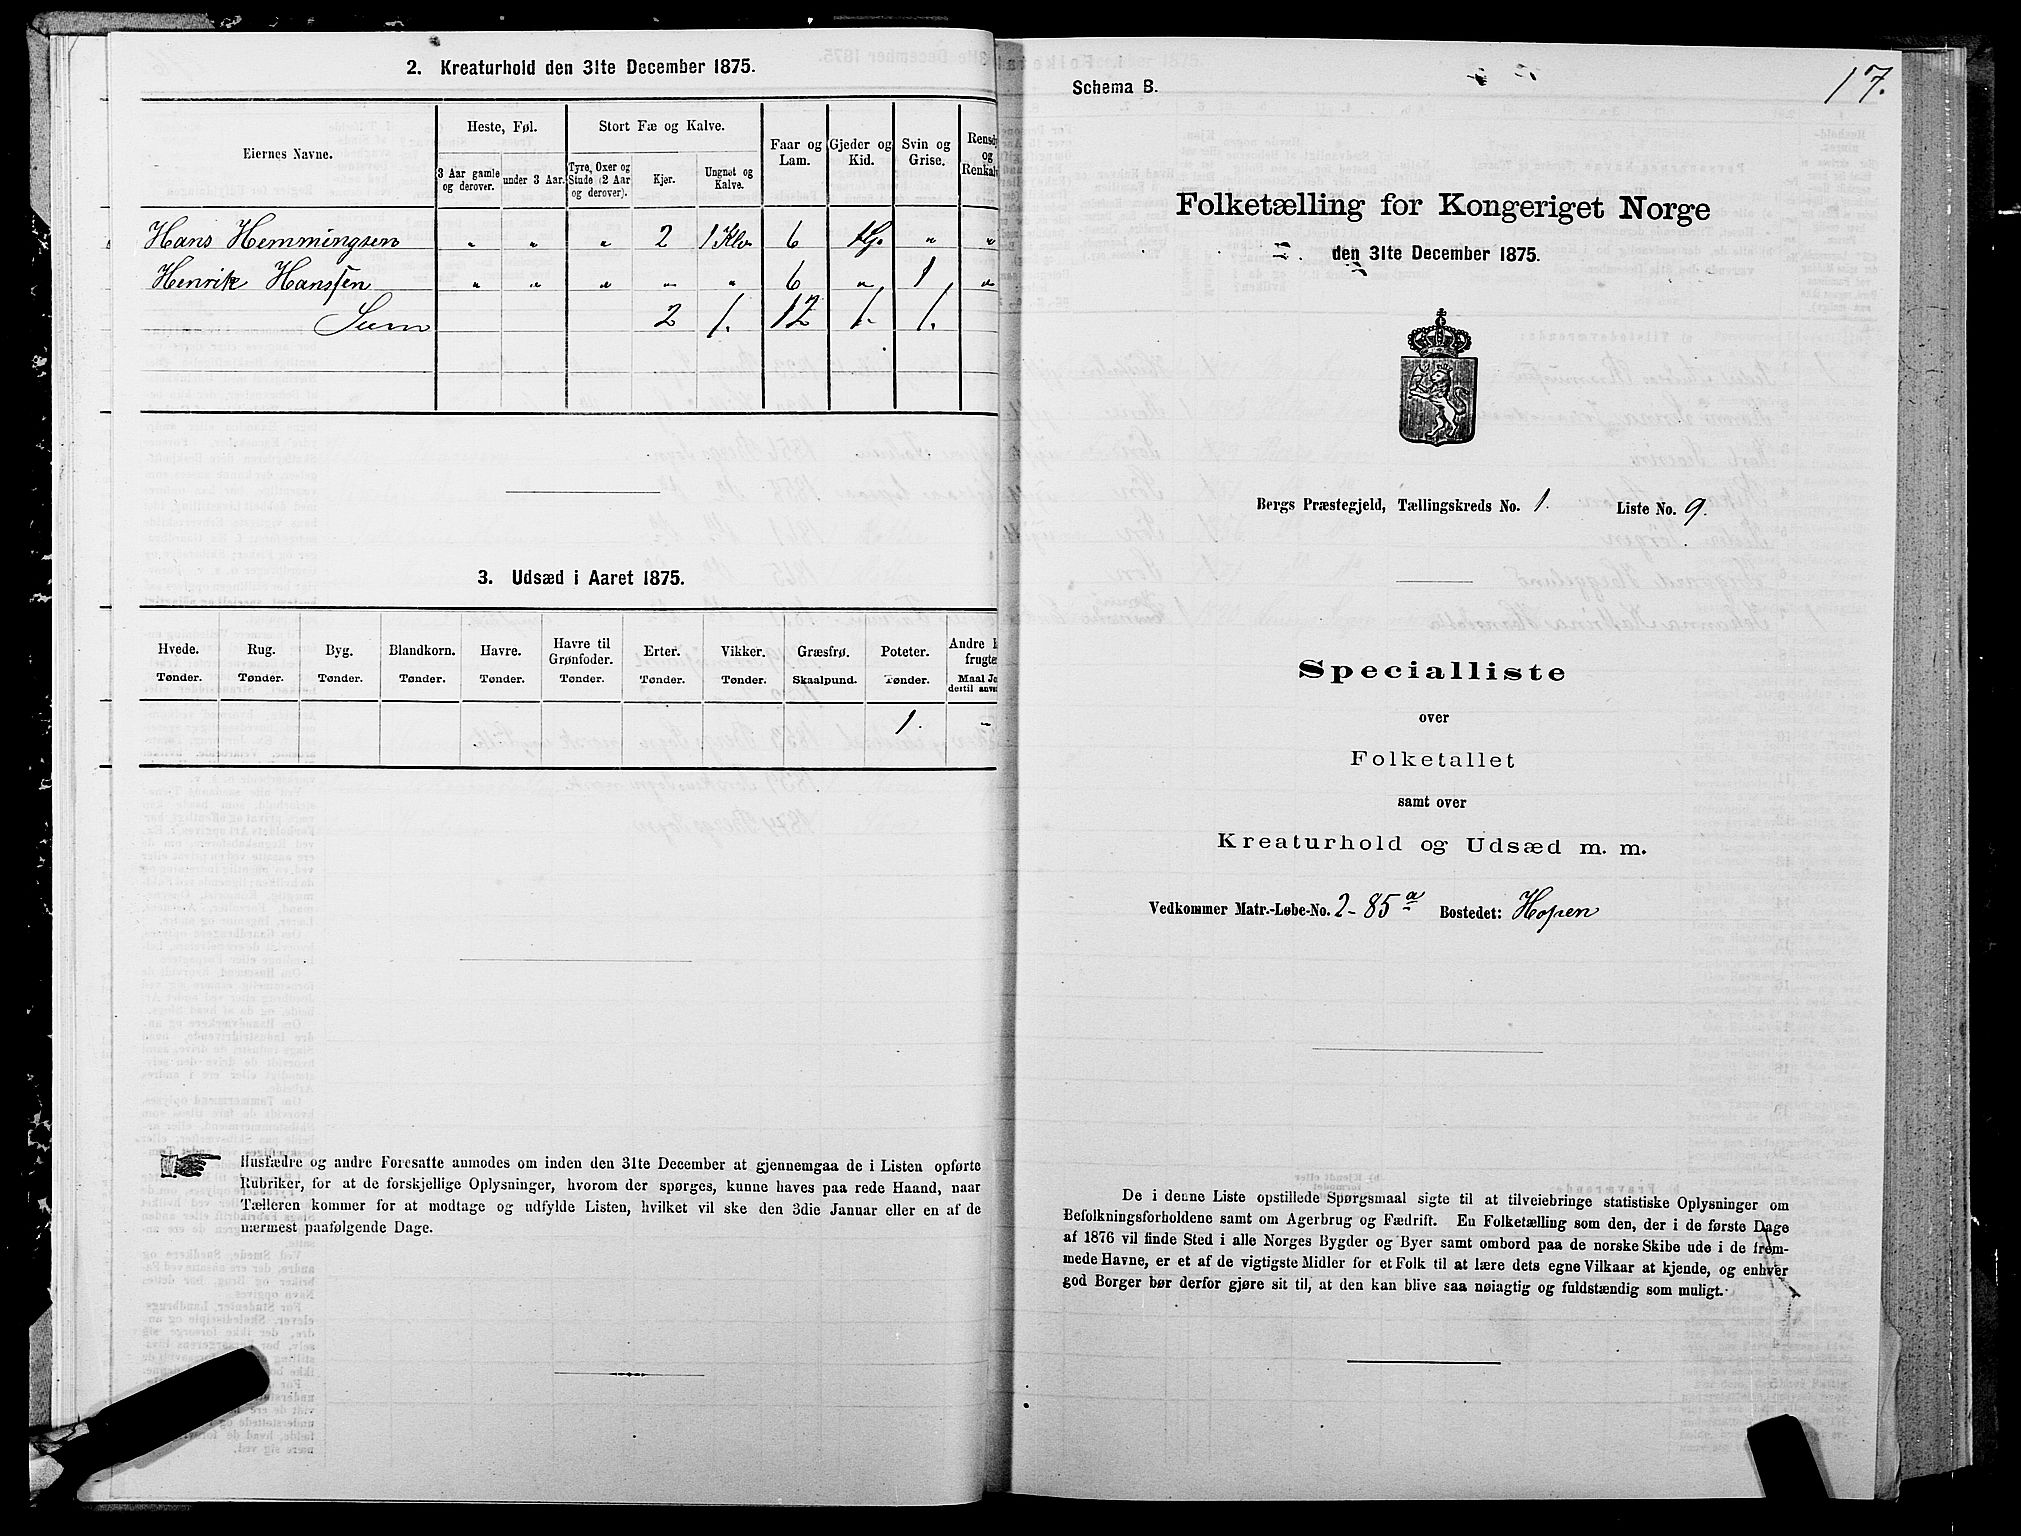 2. Kreaturhold den 31te December 1875.
Eiernes Navne.
Heste, Føl.
Stort Fæ og Kalve.
Faar og Lam.
Gjeder og Kid.
Svin og Grise.
Rensdy
og
Renkalv
3 Aar gamle og derover.
under 3 Aar.
Tyre, Oxer og Stude (2 Aar og derover).
Kjør.
Ungnøt og Kalve.
Hans Hemmingsen " " " 2 1 Klv 6 1 G. " "
Henrik Hanssen " " " " " 6 " 1 "
Sum 2 1. 12 1. 1.
3. Udsæd i Aaret 1875.
Hvede. Rug. Byg. Blandkorn. Havre. Havre til Grønfoder. Erter. Vikker. Græsfrø. Poteter. Andre
frugte
Tønder. Tønder. Tønder. Tønder. Tønder. Tønder. Tønder. Tønder. Skaalpund. Tønder. Maal Jo
dertil anv
1. -
Husfædre og andre Foresatte anmodes om inden den 31te December at gjennemgaa de i Listen opførte
Rubriker, for at de forskjellige Oplysninger, hvorom der spørges, kunne haves paa rede Haand, naar
Tælleren kommer for at modtage og udfylde Listen, hvilket vil ske den 3die Januar eller en af de
nærmest paafølgende Dage.
Schema B.
17.
Folketælling for Kongeriget Norge
den 31te December 1875.
Bergs Præstegjeld, Tællingskreds No. 1. Liste No. 9.
Specialliste
over
Folketallet
samt over
Kreaturhold og Udsæd m. m.
Vedkommer Matr.-Løbe-No. 2-85a Bostedet: Hopen
De i denne Liste opstillede Spørgsmaal sigte til at tilveiebringe statistiske Oplysninger om
Befolkningsforholdene samt om Agerbrug og Fædrift. En Folketælling som den, der i de første Dage
af 1876 vil finde Sted i alle Norges Bygder og Byer samt ombord paa de norske Skibe ude i de frem-
mede Havne, er et af de vigtigste Midler for et Folk til at lære dets egne Vilkaar at kjende, og enhver
god Borger bør derfor gjøre sit til, at den kan blive saa nøiagtig og fuldstændig som muligt.